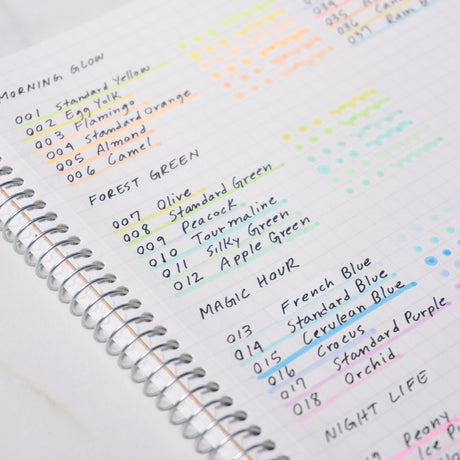 MORNING GLOW
001 Standard Yellow
002 Egg Yolk
003 Flamingo
004 Standard Orange
005 Almond
006 Camel
FOREST GREEN
007 Olive
008 Standard Green
009 Peacock
010 Tourmaline
011 Silky Green
012 Apple Green
MAGIC HOUR
013 French Blue
014 Standard Blue
015 Cerulean Blue
016 Crocus
017 Standard Purple
018 Orchid
NIGHT LIFE
Peony
Ice
035
036
037 Rain